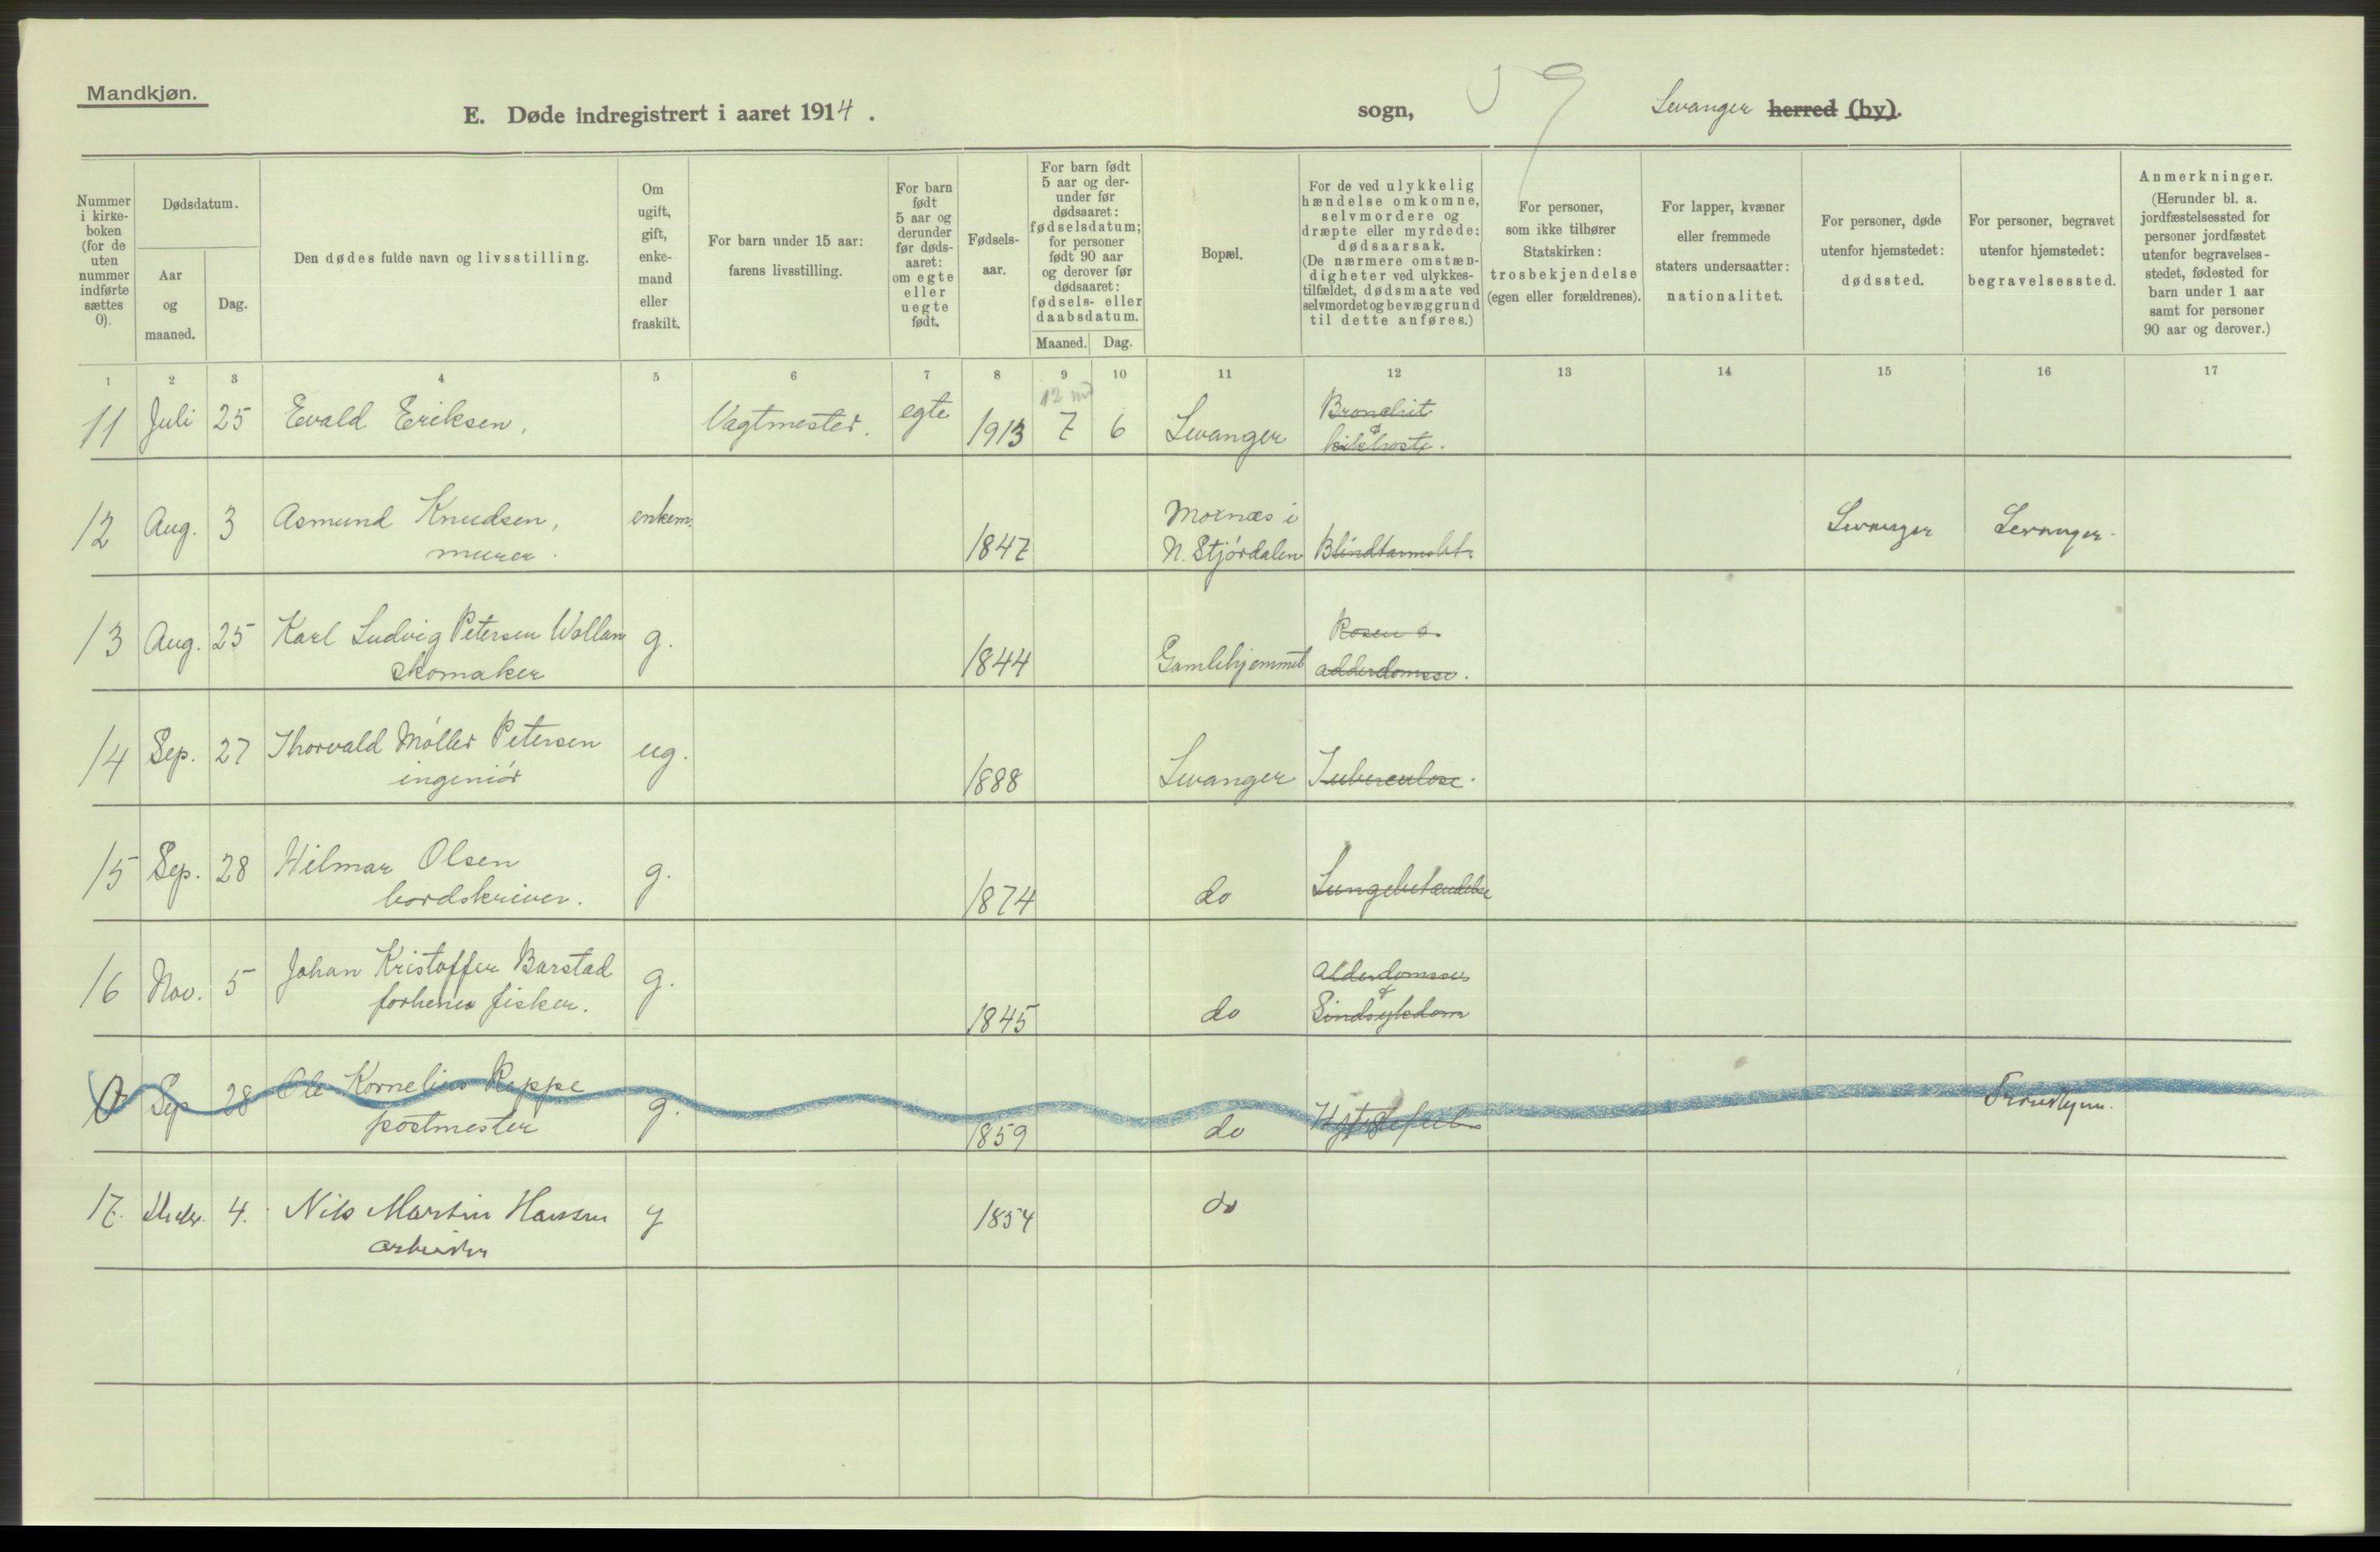 Mandkjøn.
E. Døde indregistrert i aaret 1914. sogn, Levanger herred (by).
Nummer i kirke-boken (for de uten nummer indførte sættes 0).
Dødsdatum.
Aar og maaned.
Dag.
Den dødes fulde navn og livsstilling.
Om ugift, gift, enke-mand eller fraskilt.
For barn under 15 aar: farens livsstilling.
For barn født 5 aar og derunder før døds-aaret: om egte eller uegte født.
Fødsels-aar.
For barn født 5 aar og der-under før dødsaaret: fødselsdatum; for personer født 90 aar og derover før dødsaaret: fødsels- eller daabsdatum.
Maaned. Dag.
Bopæl.
For de ved ulykkelig hændelse omkomne, selvmordere og dræpte eller myrdede: dødsaarsak. (De nærmere omstæn-digheter ved ulykkes-tilfældet, dødsmaate ved selvmordet og bevæggrund til dette anføres.)
For personer, som ikke tilhører Statskirken: trosbekjendelse (egen eller forældrenes).
For lapper, kvæner eller fremmede staters undersaatter: nationalitet.
For personer, døde utenfor hjemstedet: dødssted.
For personer, begravet utenfor hjemstedet: begravelsessted.
Anmerkninger. (Herunder bl. a. jordfæstelsessted for personer jordfæstet utenfor begravelses-stedet, fødested for barn under 1 aar samt for personer 90 aar og derover.)
1 2 3 4 5 6 7 8 9 10 11 12 13 14 15 16 17
12 md
11 Juli 25 Evald Eriksen, Vagtmester. egte 1913 7 6 Levanger Bronchit & kikhoste.
12 Aug. 3 Asmund Knudsen, enkem. 1847 Moxnæs i Levanger Levanger.
murer. N. Stjördalen Blindtarmsbet.
13 Aug. 25 Karl Ludvig Petersen Wollam g. 1844 Gamlehjemmet Rosen o.
skomaker alderdomssv.
14 Sep. 27 Thorvald Möller Petersen ug. 1888 Levanger Tuberculose.
ingeniör
15 Sep. 28 Hilmar Olsen g. 1874 do Lungebetændelse
bordskriver.
16 Nov. 5 Johan Kristoffer Barstad g. 1845 do Alderdomssv. & Sindsykdom
forhenv. fisker.
0 Sep 28 Ole Kornelius Reppe g. 1859 do Trondhjem.
postmester
17. 4. Nils Martin Hansen g 1854 do
arbeider